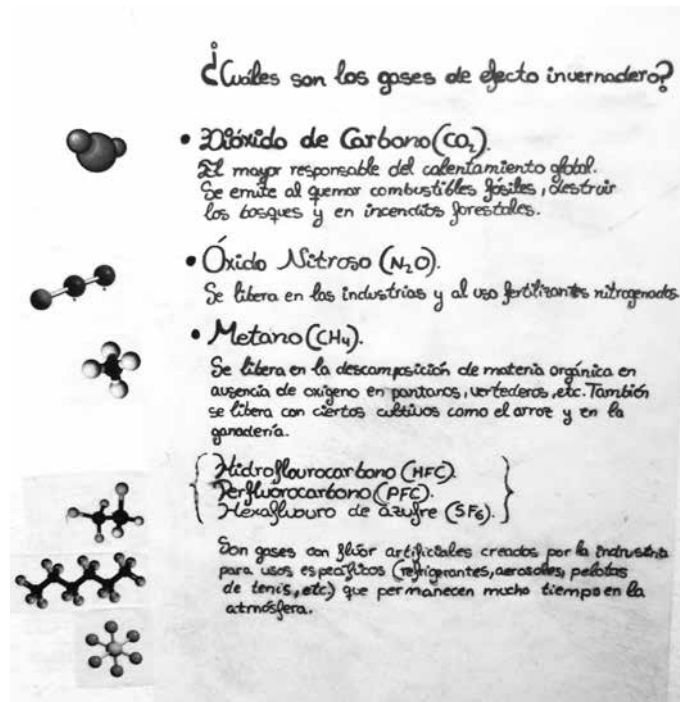 ¿Cuáles son los gases de efecto invernadero?
• Dióxido de Carbono (CO₂).
El mayor responsable del calentamiento global.
Se emite al quemar combustibles fósiles, destruir
los bosques y en incendios forestales.
• Óxido Nitroso (N₂O).
Se libera en las industrias y al uso fertilizantes nitrogenados.
• Metano (CH₄).
Se libera en la descomposición de materia orgánica en
ausencia de oxígeno en pantanos, vertederos, etc. También
se libera con ciertos cultivos como el arroz y en la
ganadería.
Hidroflourocarbono (HFC).
Perfluorocarbono (PFC).
Hexafluouro de azufre (SF₆).
Son gases con flúor artificiales creados por la indrustria
para usos específicos (refrigerantes, aerosoles, pelotas
de tenis, etc) que permanecen mucho tiempo en la
atmósfera.